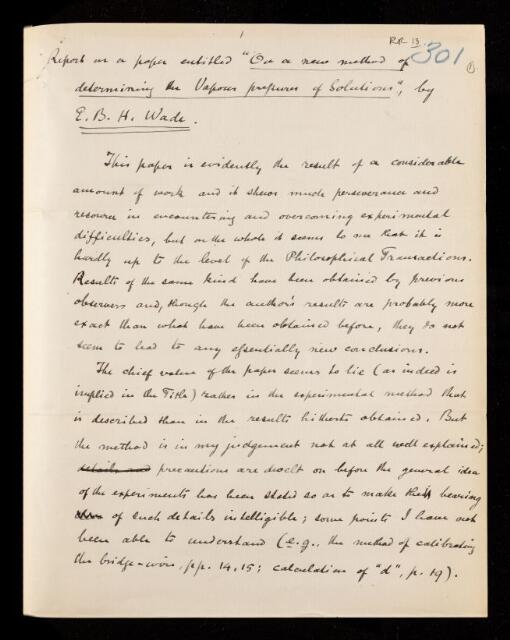 RR 13
301
1
Report on a paper entitled "On a new method of
determining the Vapour pressures of Solutions", by
E. B. H. Wade.
This paper is evidently the result of a considerable
amount of work and it shews much perseverance and
resource in encountering and overcoming experimental
difficulties, but on the whole it seems to me that it is
hardly up to the level of the Philosophical Transactions.
Results of the same kind have been obtained by previous
observers and, though the author's results are probably more
exact than what have been obtained before, they do not
seem to lead to any essentially new conclusions.
The chief value of the paper seems to lie (as indeed is
implied in the Title) rather in the experimental method that
is described than in the results hitherto obtained. But
the method is in my judgement not at all well explained;
details and precautions are dwelt on before the general idea
of the experiments has been stated so as to make the bearing
of such details intelligible; some points I have not
been able to understand (e.g., the method of calibrating
the bridge-wire, pp. 14, 15; calculation of "d", p. 19).